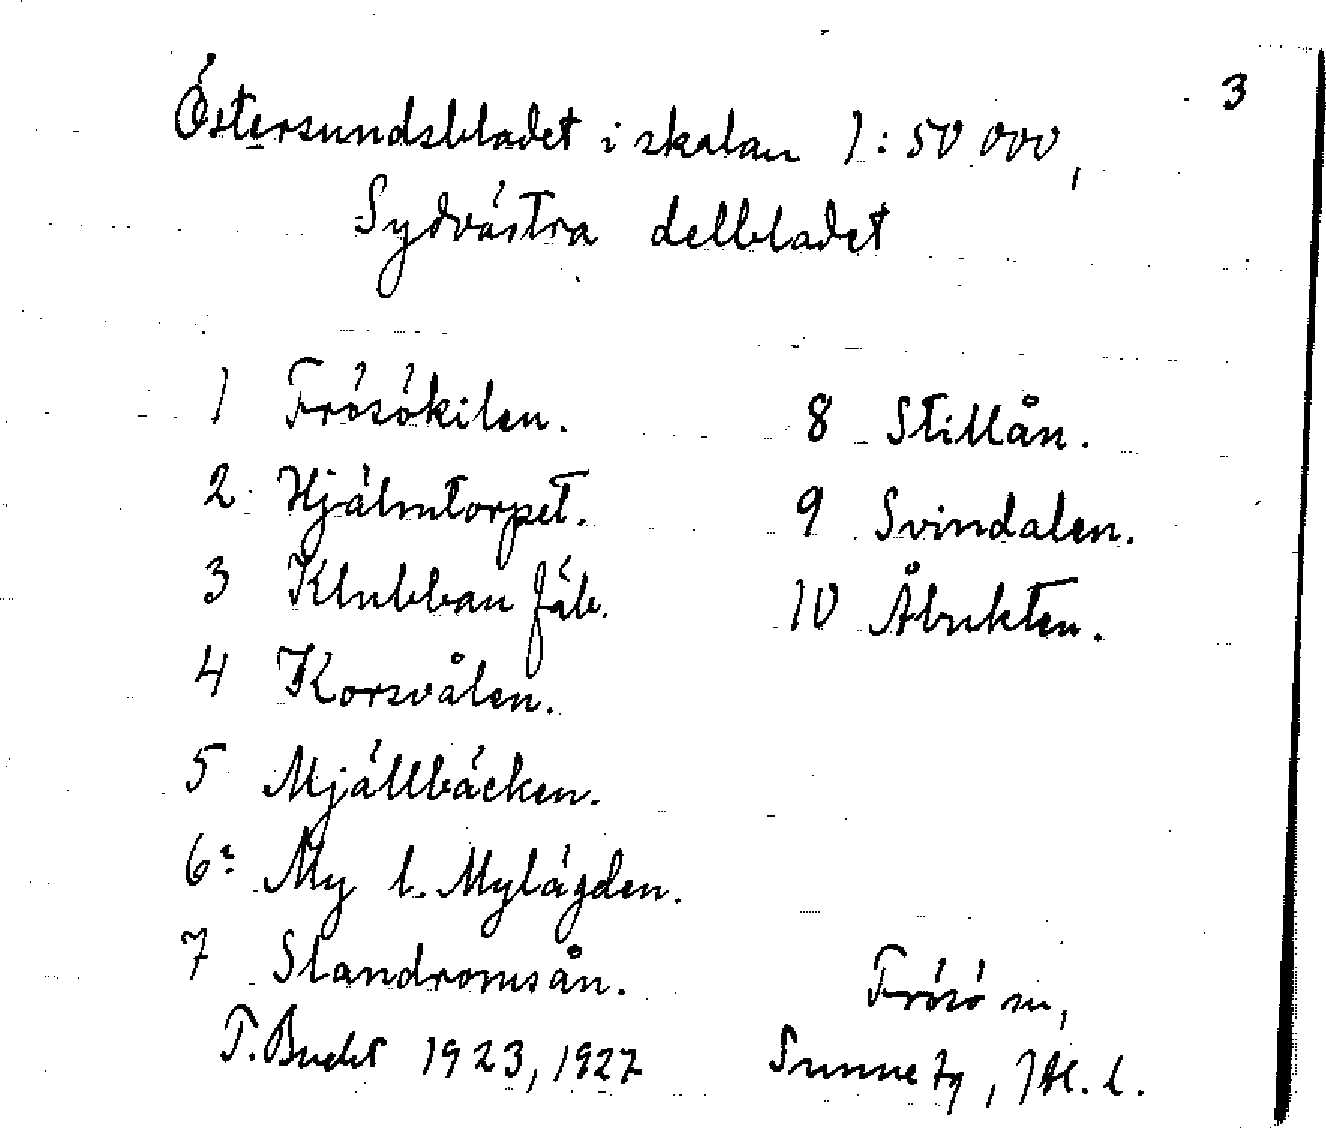 3
Östersundsbladet i skalan 1:50 000,
Sydvästra delbladet
1 Frösökilen.
2 Hjälmtorpet.
3 Klubban fäb.
4 Korsvålen.
5 Mjällbäcken.
6 My l. Mylägden.
7 Slandromsån.
8 Stillån.
9 Svindalen.
10 Åbrikten.
T. Bucht 1923, 1927
Frösö sn,
Sunne tg, Jtl. l.